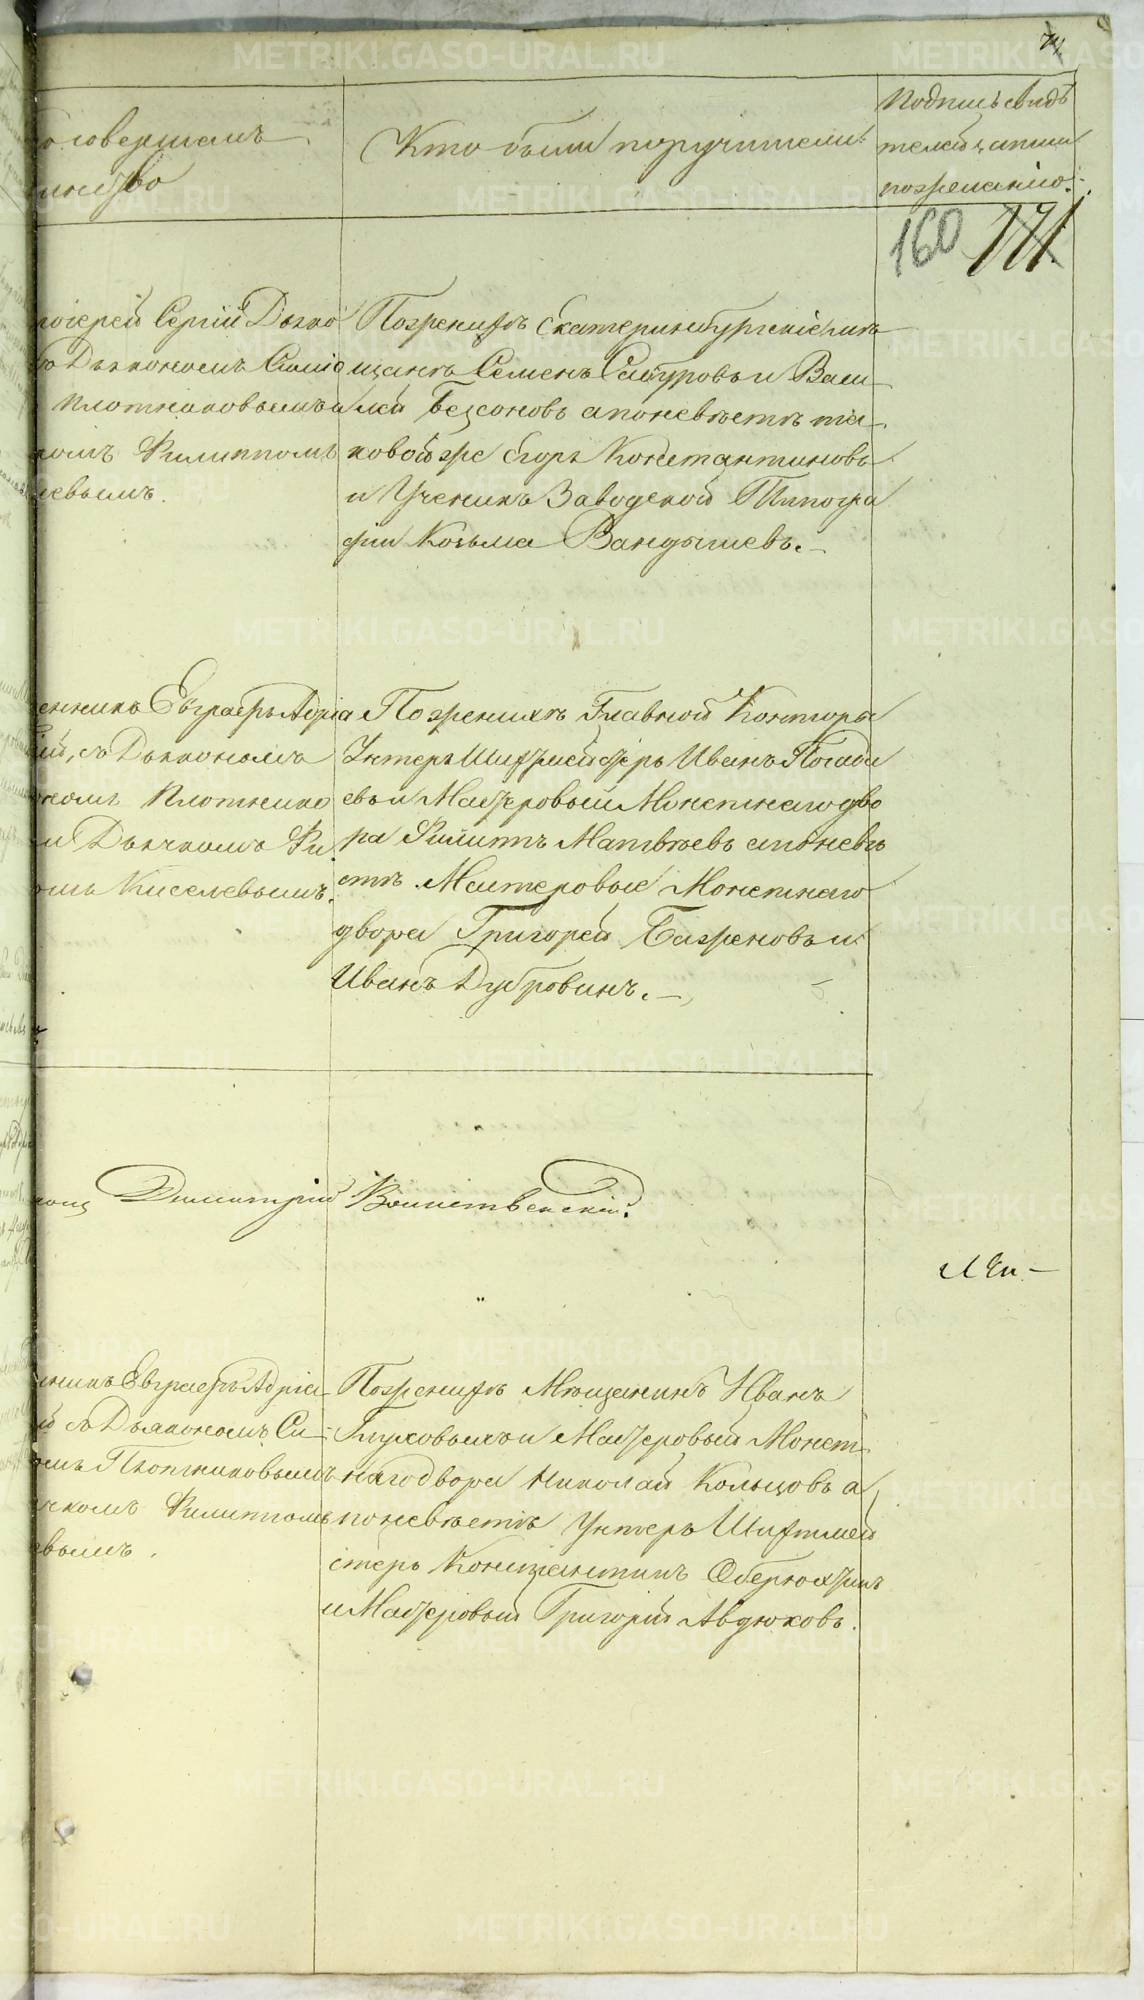 74
Кто совершалъ
таинство
Кто были поручители.
Подпись свидѣ
телей, записи
по желанію.
160 171
тоіерей Сергій
съ Дьякономъ
Плотниковымъ и
комъ Филиппомъ
левымъ.
По женихѣ Екатеринбургскіе мѣ
щанѣ Семенъ Сабуровъ и Васи
лей Безсоновъ а по невѣстѣ та
ковой же Егоръ Константиновъ
и Ученикъ Заводской Типогра
фіи Козьма Вандышевъ.
щенникъ Евграфъ Адріа
кій, съ Дьякономъ
ономъ Плотнико
и Дьячкомъ Фи
омъ Киселевымъ.
По женихѣ Главной Конторы
Унтеръ Шихтмейстеръ Иванъ Погади
евъ и Мастеровый Монетнаго дво
ра Филиппъ Матвѣевъ а по невѣ
стѣ Мастеровые Монетнаго
двора Григорей Баженовъ и
Иванъ Дубровинъ.
Димитрій Воинственскій.
щенникъ Евграфъ Адріа
й съ Дьякономъ Си
омъ Плотниковымъ
ячкомъ Филиппомъ
евымъ.
По женихѣ Мѣщанинъ Иванъ
Глуховыхъ и Мастеровый Монет
наго двора Николай Кольцовъ а
по невѣстѣ Унтеръ Шихтмей
стеръ Константинъ Оберюхтинъ
и Мастеровый Григорій Авдюковъ.